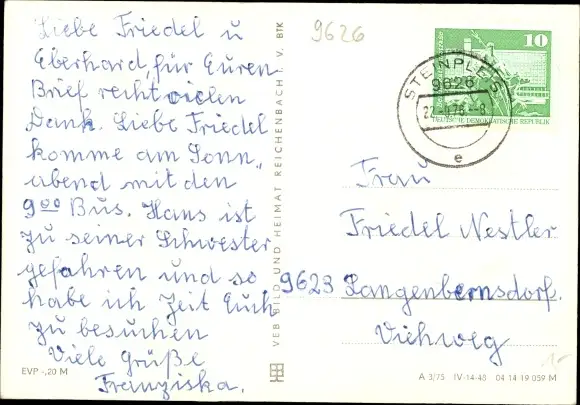 Liebe Friedel u
Eberhard, für Euren
Brief recht vielen
Dank. Liebe Friedel
komme am Sonn„
abend mit den
9⁰⁰ Bus. Hans ist
zu seiner Schwester
gefahren und so
habe ich Zeit Euch
zu besuchen
Viele Grüße
Franziska.
EVP -,20 M
VEB BILD UND HEIMAT REICHENBACH I. V. BTK
9626
10
DEUTSCHE DEMOKRATISCHE REPUBLIK
STEINPLEIS
9626
e
Frau
Friedel Nestler
9623 Langenbernsdorf.
Viehweg
A 3/75 IV-14-48 04 14 19 059 M